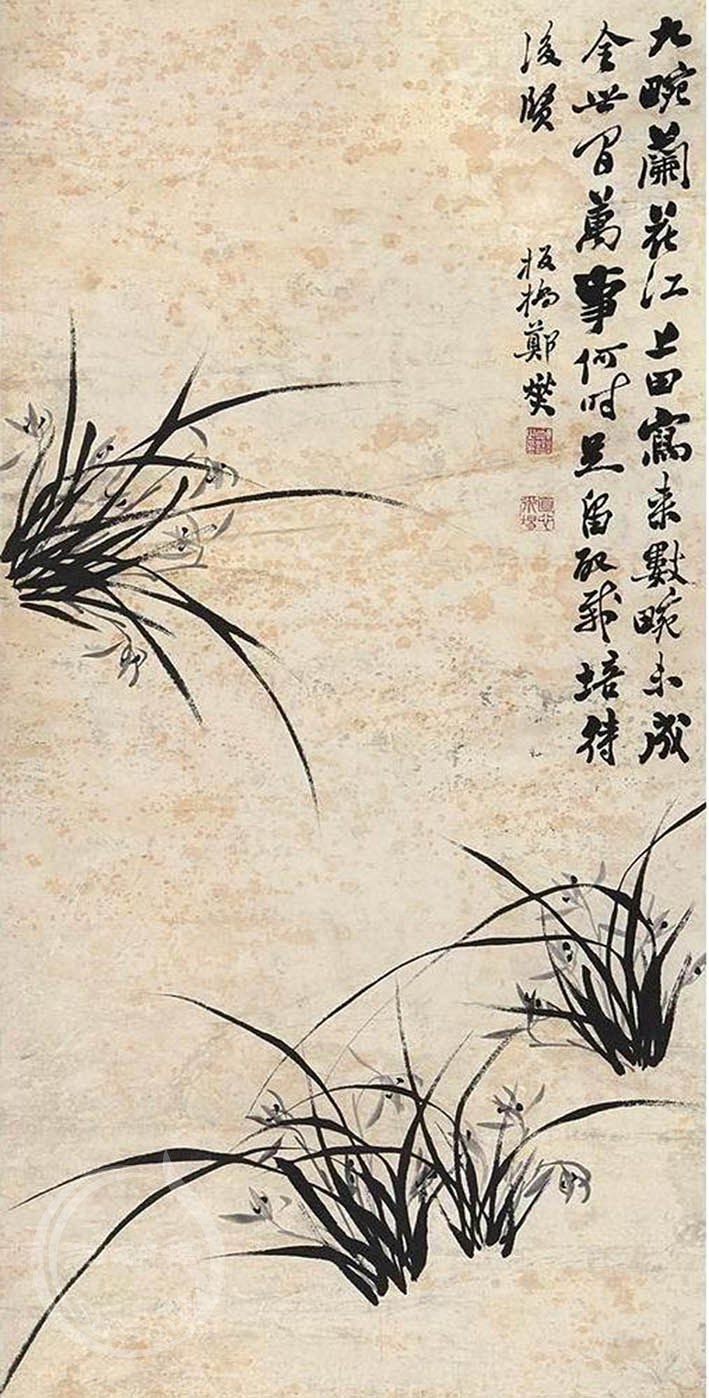 九畹蘭花江上田寫來數畹未成
全世間萬事何時足留取栽培待
後賢
板橋鄭燮